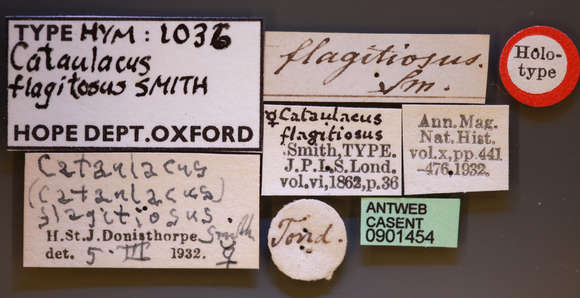 TYPE HYM: 1036
Cataulacus
flagitosus SMITH
HOPE DEPT.OXFORD
flagitiosus.
Sm.
Holo-
type
♀ Cataulacus
flagitiosus
Smith, TYPE.
J.P.L.S. Lond.
vol.vi, 1862, p.36
Ann. Mag.
Nat. Hist.
vol.x, pp.441
-476.1932.
Cataulacus
(Cataulacus)
flagitiosus
Smith
H. St. J. Donisthorpe
det. 5. III 1932. ♀
Tond.
ANTWEB
CASENT
0901454